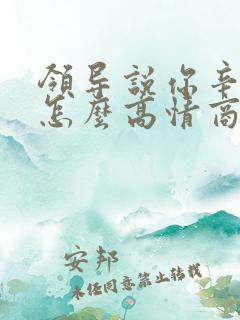 領导說你辛
怎麼高情商
安邦
未经同意禁止转载